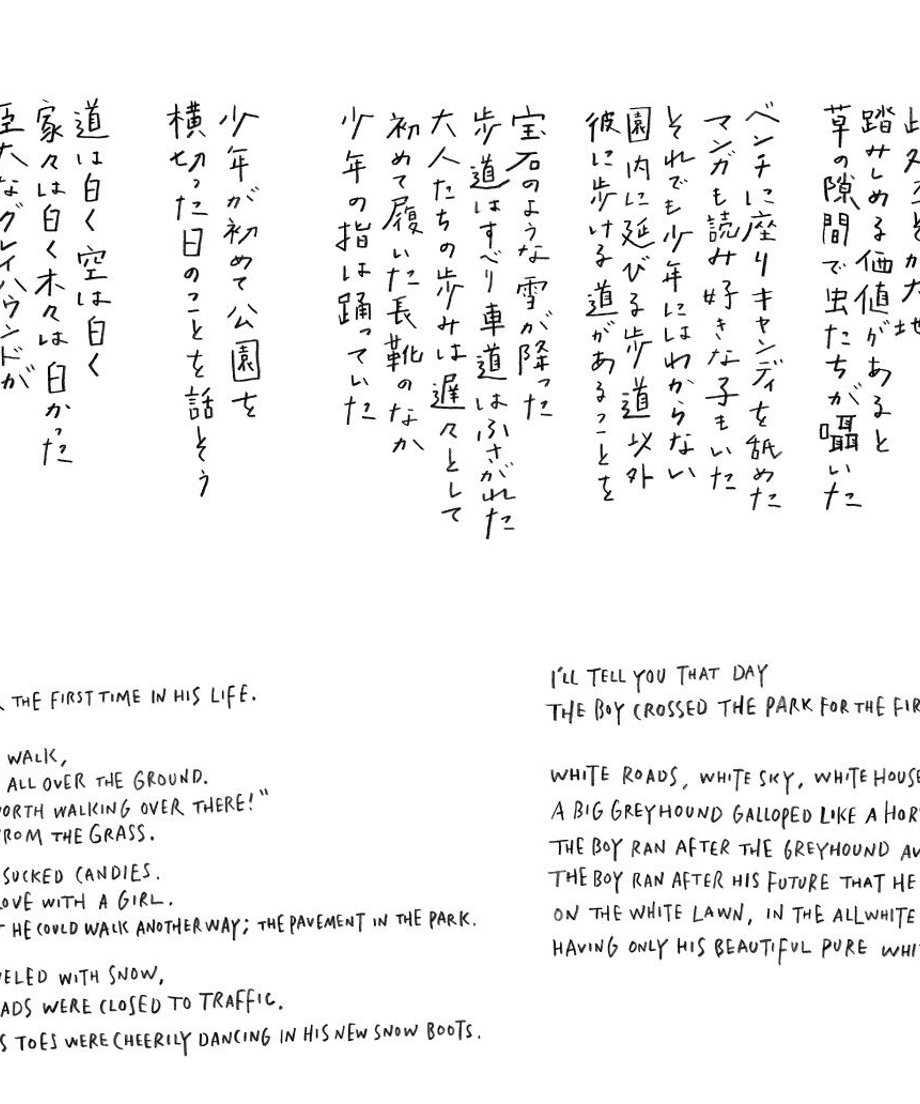 踏みしめる価値があると
草の隙間で虫たちが囁いた
ベンチに座りキャンディを舐めた
マンガも読み好きな子もいた
それでも少年にはわからない
園内に延びる歩道以外
彼に歩ける道があることを
宝石のような雪が降った
歩道はすべり車道はふさがれた
大人たちの歩みは遅々として
初めて履いた長靴のなか
少年の指は踊っていた
少年が初めて公園を
横切った日のことを話そう
道は白く空は白く
家々は白く木々は白かった
巨大なグレイハウンドが
THE FIRST TIME IN HIS LIFE.
WALK,
ALL OVER THE GROUND.
ORTH WALKING OVER THERE!"
ROM THE GRASS.
SUCKED CANDIES.
OVE WITH A GIRL.
HE COULD WALK ANOTHER WAY; THE PAVEMENT IN THE PARK.
ELED WITH SNOW,
ADS WERE CLOSED TO TRAFFIC.
S TOES WERE CHEERILY DANCING IN HIS NEW SNOW BOOTS.
I'LL TELL YOU THAT DAY
THE BOY CROSSED THE PARK FOR THE FIR
WHITE ROADS, WHITE SKY, WHITE HOUSE
A BIG GREYHOUND GALLOPED LIKE A HOR
THE BOY RAN AFTER THE GREYHOUND AW
THE BOY RAN AFTER HIS FUTURE THAT HE
ON THE WHITE LAWN, IN THE ALLWHITE
HAVING ONLY HIS BEAUTIFUL PURE WHI